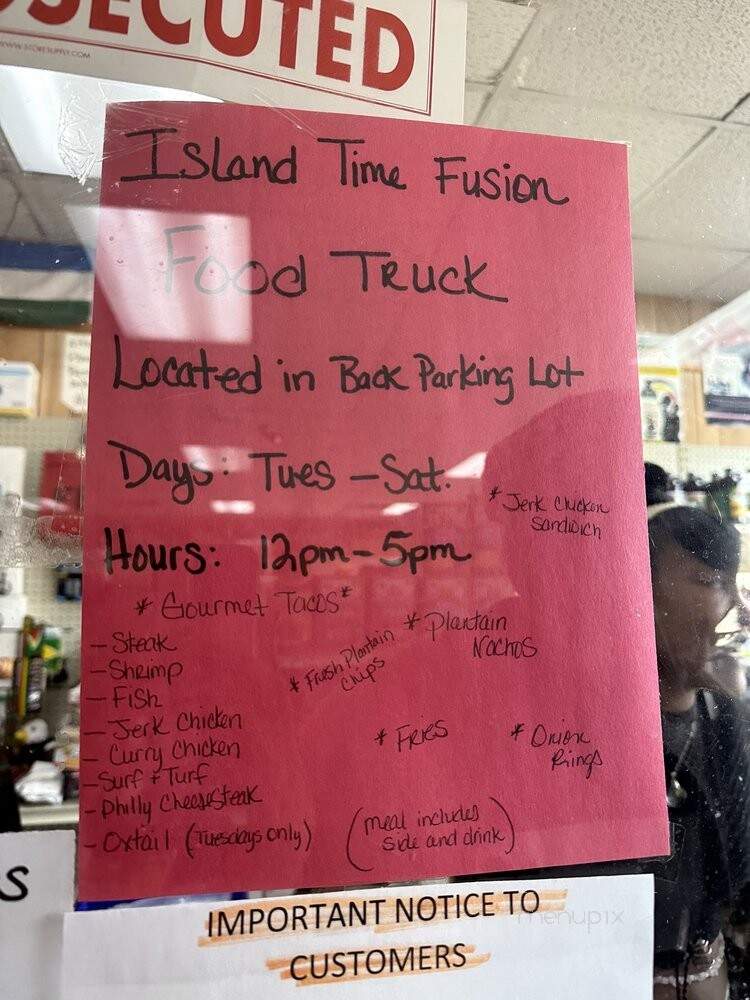 OSECUTED
WWW.STORESUPPLY.COM
Island Time Fusion
Food Truck
Located in Back Parking Lot
Days: Tues - Sat.
* Jerk Chicken
Sandwich
Hours: 12pm - 5pm
* Gourmet Tacos *
- Steak
- Shrimp
- Fish
- Jerk Chicken
- Curry Chicken
- Surf & Turf
- Philly Cheesesteak
- Oxtail (Tuesdays only)
* Fresh Plantain
Chips
* Plantain
Nachos
* Fries
* Onion
Rings
(meal includes
side and drink)
S
IMPORTANT NOTICE TO
CUSTOMERS
menupix